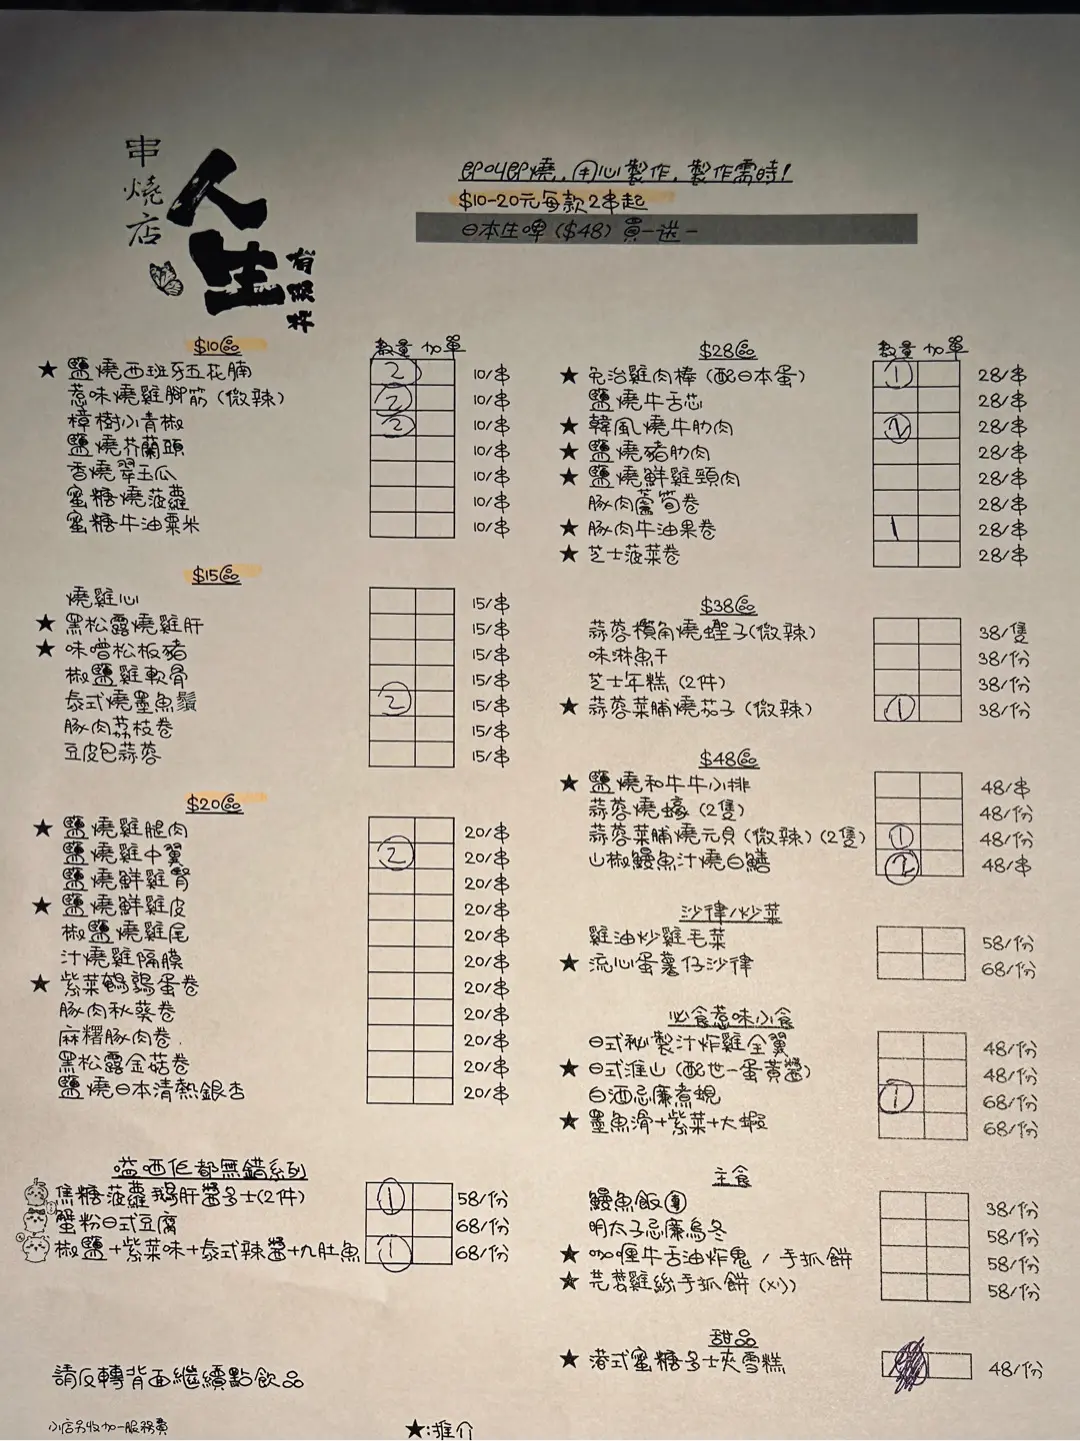 串燒店
人生
有限杯
即叫即燒，用心製作，製作需時！
$10-20元每款2串起
日本生啤（$48）買一送一
$10區 數量 加單
★ 鹽燒西班牙五花腩 2 10/串
惹味燒雞腳筋（微辣） 2 10/串
樟樹小青椒 2 10/串
鹽燒芥蘭頭 10/串
香燒翠玉瓜 10/串
蜜糖燒菠蘿 10/串
蜜糖牛油粟米 10/串
$15區
燒雞心 15/串
★ 黑松露燒雞肝 15/串
★ 味噌松板豬 15/串
椒鹽雞軟骨 15/串
泰式燒墨魚鬚 2 15/串
豚肉荔枝卷 15/串
豆皮包蒜蓉 15/串
$20區
★ 鹽燒雞腿肉 20/串
鹽燒雞中翼 2 20/串
鹽燒鮮雞腎 20/串
★ 鹽燒鮮雞皮 20/串
椒鹽燒雞尾 20/串
汁燒雞隔膜 20/串
★ 紫菜鵪鶉蛋卷 20/串
豚肉秋葵卷 20/串
麻糬豚肉卷 20/串
黑松露金菇卷 20/串
鹽燒日本清熱銀杏 20/串
嗌哂佢都無錯系列
焦糖菠蘿鵝肝醬多士(2件) 1 58/份
蟹粉日式豆腐 68/份
椒鹽+紫菜味+泰式辣醬+九肚魚 1 68/份
請反轉背面繼續點飲品
小店另收加一服務費
$28區 數量 加單
★ 免治雞肉棒（配日本蛋） 1 28/串
鹽燒牛舌芯 28/串
★ 韓風燒牛肋肉 28/串
★ 鹽燒豬肋肉 28/串
★ 鹽燒鮮雞頸肉 28/串
豚肉蘆筍卷 28/串
★ 豚肉牛油果卷 1 28/串
★ 芝士菠菜卷 28/串
$38區
蒜蓉欖角燒蟶子(微辣) 38/隻
味淋魚干 38/份
芝士年糕（2件） 38/份
★ 蒜蓉菜脯燒茄子（微辣） 1 38/份
$48區
★ 鹽燒和牛牛小排 48/串
蒜蓉燒蠔（2隻） 48/份
蒜蓉菜脯燒元貝（微辣）（2隻） 1 48/份
山椒鰻魚汁燒白鱔 48/串
沙律/炒菜
雞油炒雞毛菜 58/份
★ 流心蛋薯仔沙律 68/份
必食惹味小食
日式秘製汁炸雞全翼 48/份
★ 日式淮山（配世一蛋黃醬） 48/份
白酒忌廉煮蜆 1 68/份
★ 墨魚滑+紫菜+大蝦 68/份
主食
鰻魚飯 38/份
明太子忌廉烏冬 58/份
★ 咖喱牛舌油炸鬼 / 手抓餅 58/份
★ 芫荽雞絲手抓餅（刈） 58/份
甜品
★ 港式蜜糖多士夾雪糕 48/份
★:推介